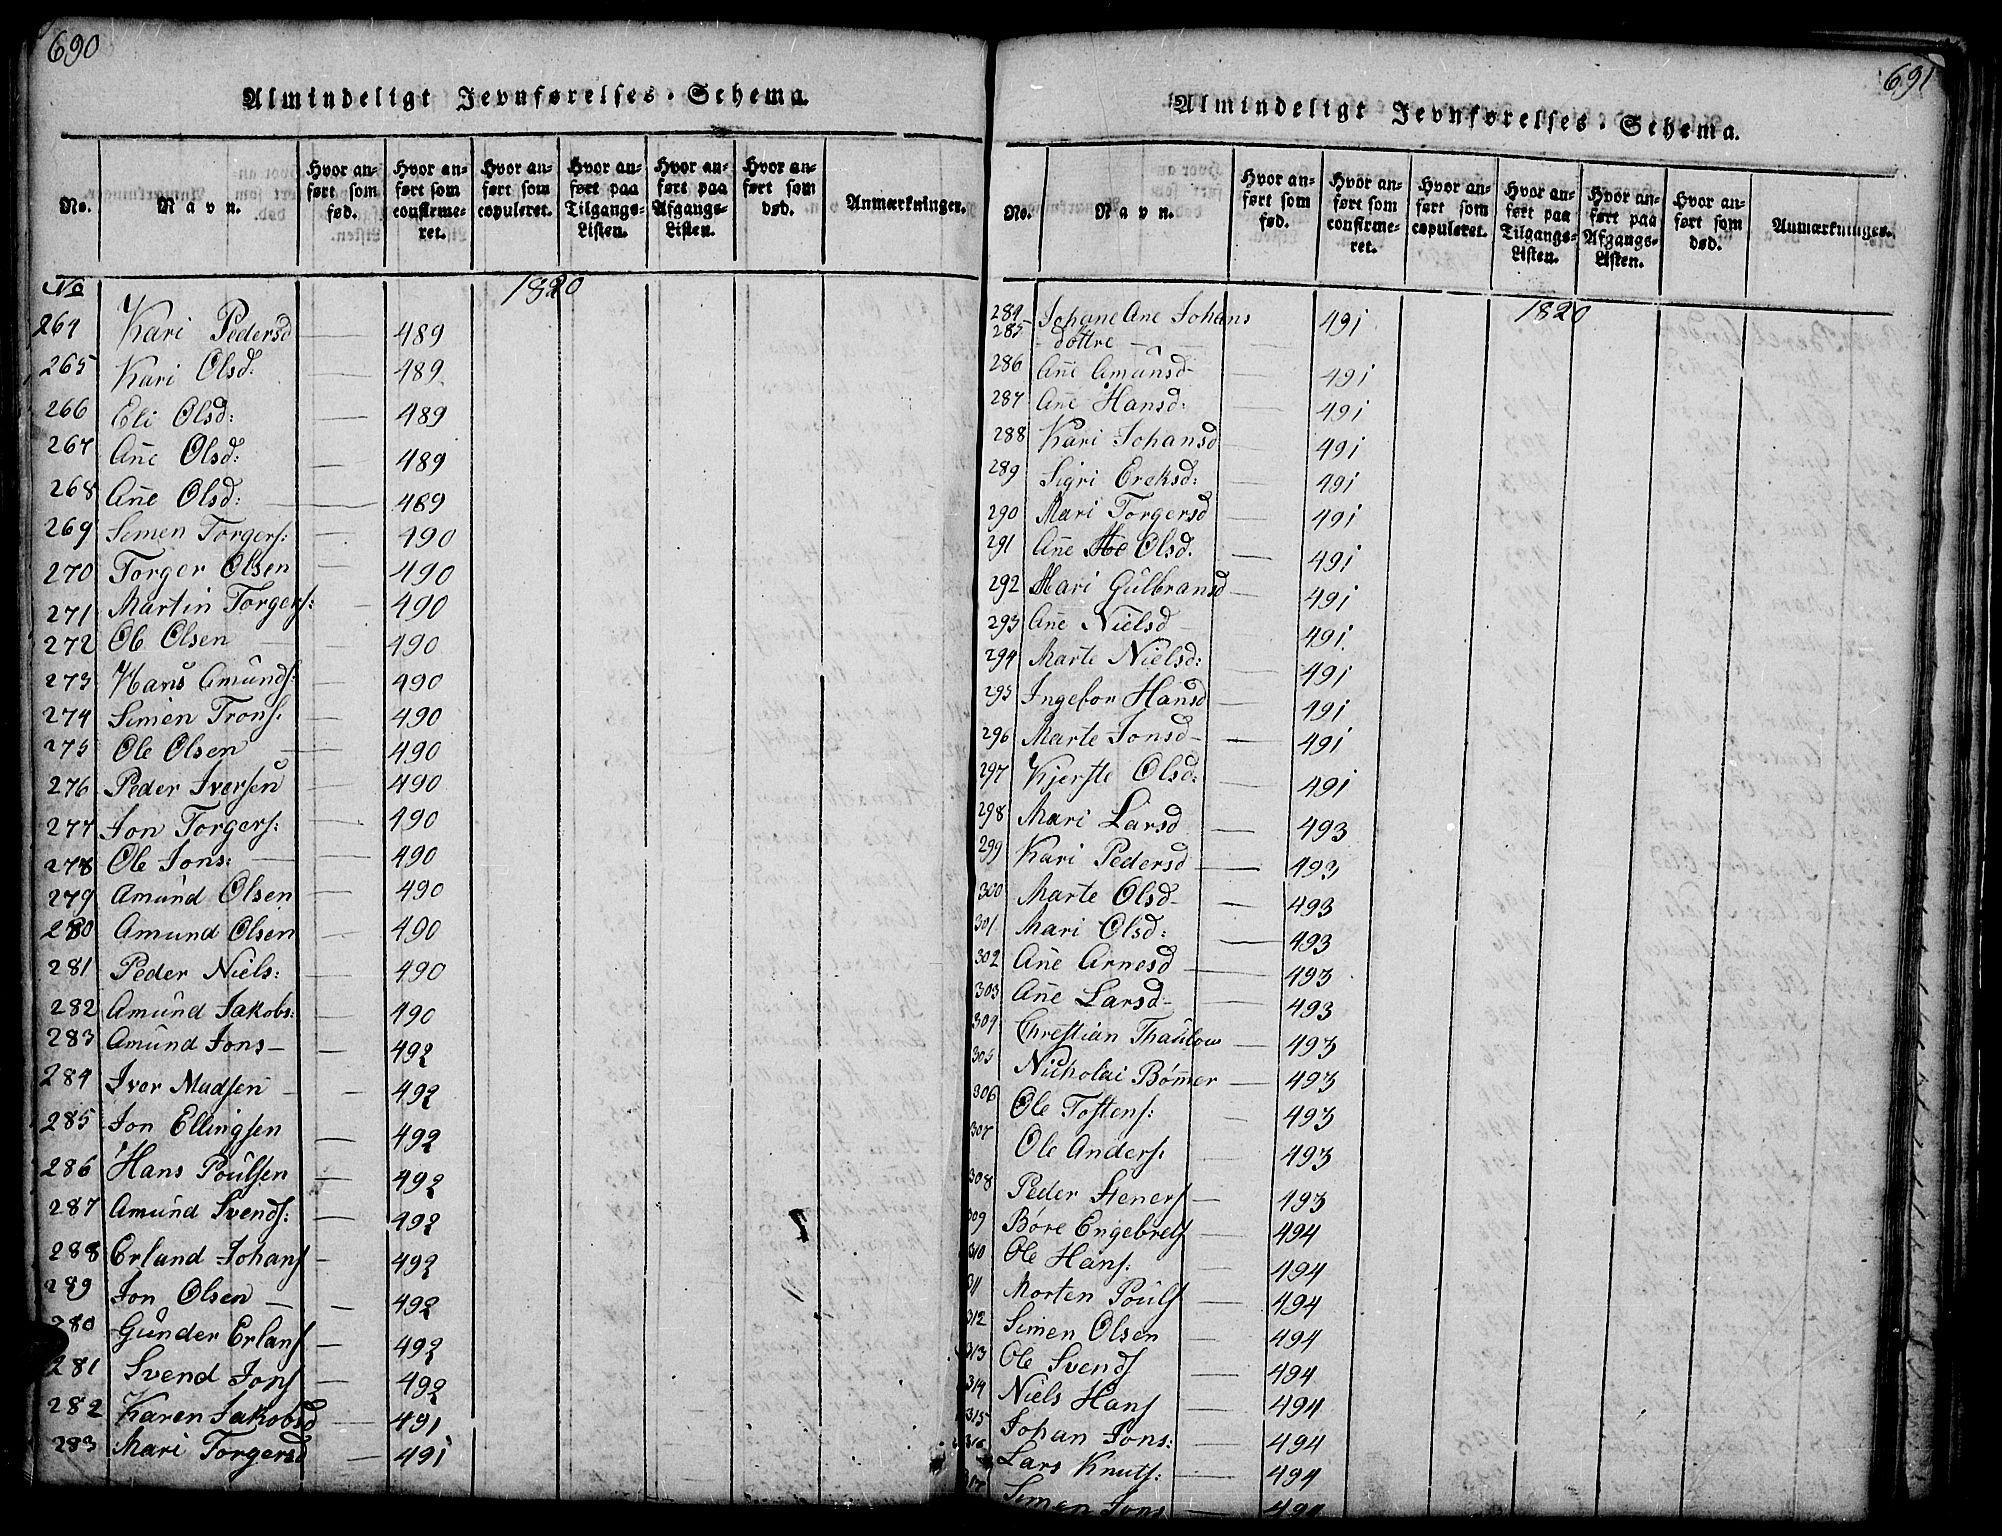 690
Almindeligt Jevnførelses-Schema.
No.
Navn.
Hvor anført som fød.
Hvor anført som confirmeret.
Hvor anført som copuleret.
Hvor anført paa Tilgangs-Listen.
Hvor anført paa Afgangs-Listen.
Hvor anført som død.
Anmærkninger.
No 1820
264 Kari Pedersd 489
265 Kari Olsd: 489
266 Eli Olsd: 489
267 Ane Olsd: 489
268 Ane Olsd: 489
269 Simen Torgers: 490
270 Torger Olsen 490
271 Martin Torgers: 490
272 Ole Olsen 490
273 Hans Amunds: 490
274 Simen Trons: 490
275 Ole Olsen 490
276 Peder Iversen 490
277 Jon Torgers: 490
278 Ole Jons: 490
279 Amund Olsen 490
280 Amund Olsen 490
281 Peder Niels: 490
282 Amund Jakobs: 490
283 Amund Jons 492
284 Iver Madsen 492
285 Jon Ellingsen 492
286 Hans Poulsen 492
287 Amund Svends: 492
288 Erland Johans 492
289 Jon Olsen 492
280 Gunder Erlans 492
281 Svend Jons 492
282 Karen Jakobsd 491
283 Mari Torgersd 491
691
Almindeligt Jevnførelses-Schema.
No.
Navn.
Hvor anført som fød.
Hvor anført som confirmeret.
Hvor anført som copuleret.
Hvor anført paa Tilgangs-Listen.
Hvor anført paa Afgangs-Listen.
Hvor anført som død.
Anmærkninger.
1820
284 Johane Ane Johans 491
285 døttre
286 Ane Amunsd 491
287 Ane Hansd: 491
288 Kari Johansd 491
289 Sigri Ereksd: 491
290 Mari Torgersd 491
291 Ane Olsd. 491
292 Mari Gulbransd 491
293 Ane Nielsd 491
294 Marte Nielsd: 491
295 Ingebor Hansd 491
296 Marte Jonsd 491
297 Kjerste Olsd: 491
298 Mari Larsd 493
299 Kari Pedersd 493
300 Marte Olsd 493
301 Mari Olsd: 493
302 Ane Arnesd 493
303 Ane Larsd 493
304 Chrestian Thaulow 493
305 Nicholai Bømer 493
306 Ole Tostens: 493
307 Ole Anders: 493
308 Peder Steners 493
309 Børe Engebrets 494
310 Ole Hans: 494
311 Morten Pouls 494
312 Simen Olsen 494
313 Ole Svends 494
314 Niels Hans 494
315 Johan Jons: 494
316 Lars Knuts: 494
317 Simen Jons 494